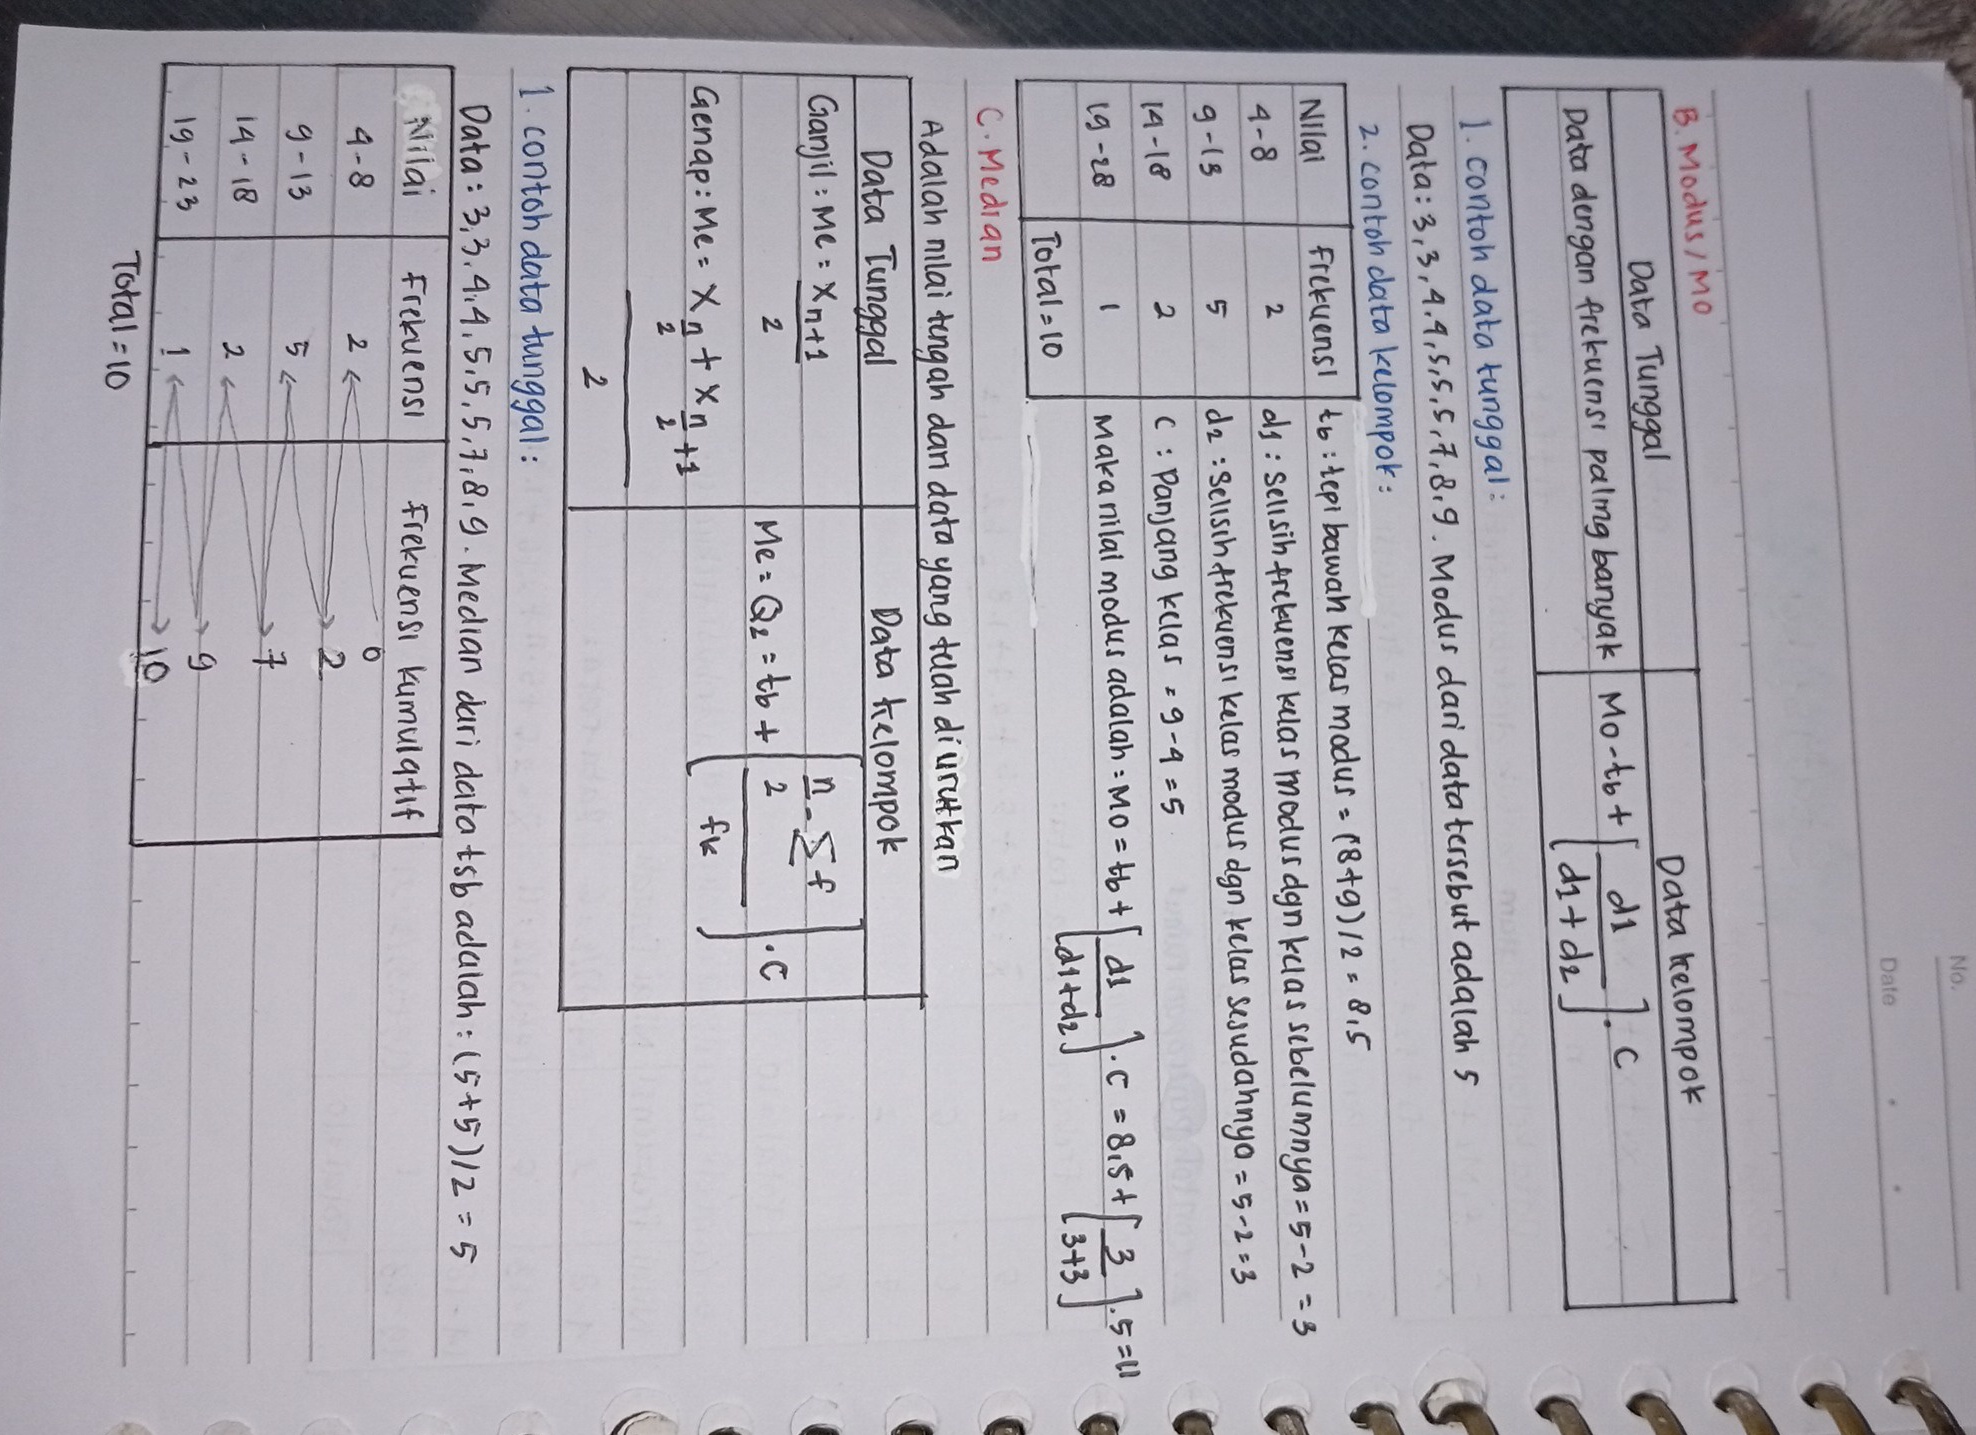 No.
Date
B. Modus / Mo
Data Tunggal | Data kelompok
Data dengan frekuensi paling banyak | Mo - tb + [d1 / d1 + d2] . C
1. contoh data tunggal :
Data : 3, 3, 4, 4, 5, 5, 5, 7, 8, 9. Modus dari data tersebut adalah 5
2. contoh data kelompok :
Nilai | frekuensi
4-8 | 2
9-13 | 5
14-18 | 2
19-28 | 1
Total = 10
tb : tepi bawah kelas modus = (8+9)/2 = 8,5
d1 : selisih frekuensi kelas modus dgn kelas sebelumnya = 5-2 = 3
d2 : selisih frekuensi kelas modus dgn kelas sesudahnya = 5-2 = 3
C : panjang kelas = 9-4 = 5
Maka nilai modus adalah : Mo = tb + [d1 / d1+d2] . C = 8,5 + [3 / 3+3] . 5 = 11
C. Median
Adalah nilai tengah dari data yang telah di urutkan
Data Tunggal | Data kelompok
Ganjil : Me = X n+1 / 2
Genap : Me = X n/2 + X n/2 + 1 / 2
Me = Q2 = tb + [n/2 - ∑f / fk] . C
1. contoh data tunggal :
Data : 3, 3, 4, 4, 5, 5, 5, 7, 8, 9. Median dari data tsb adalah : (5+5)/2 = 5
Nilai | frekuensi | frekuensi kumulatif
0
4-8 | 2 | 2
9-13 | 5 | 7
14-18 | 2 | 9
19-23 | 1 | 10
Total = 10